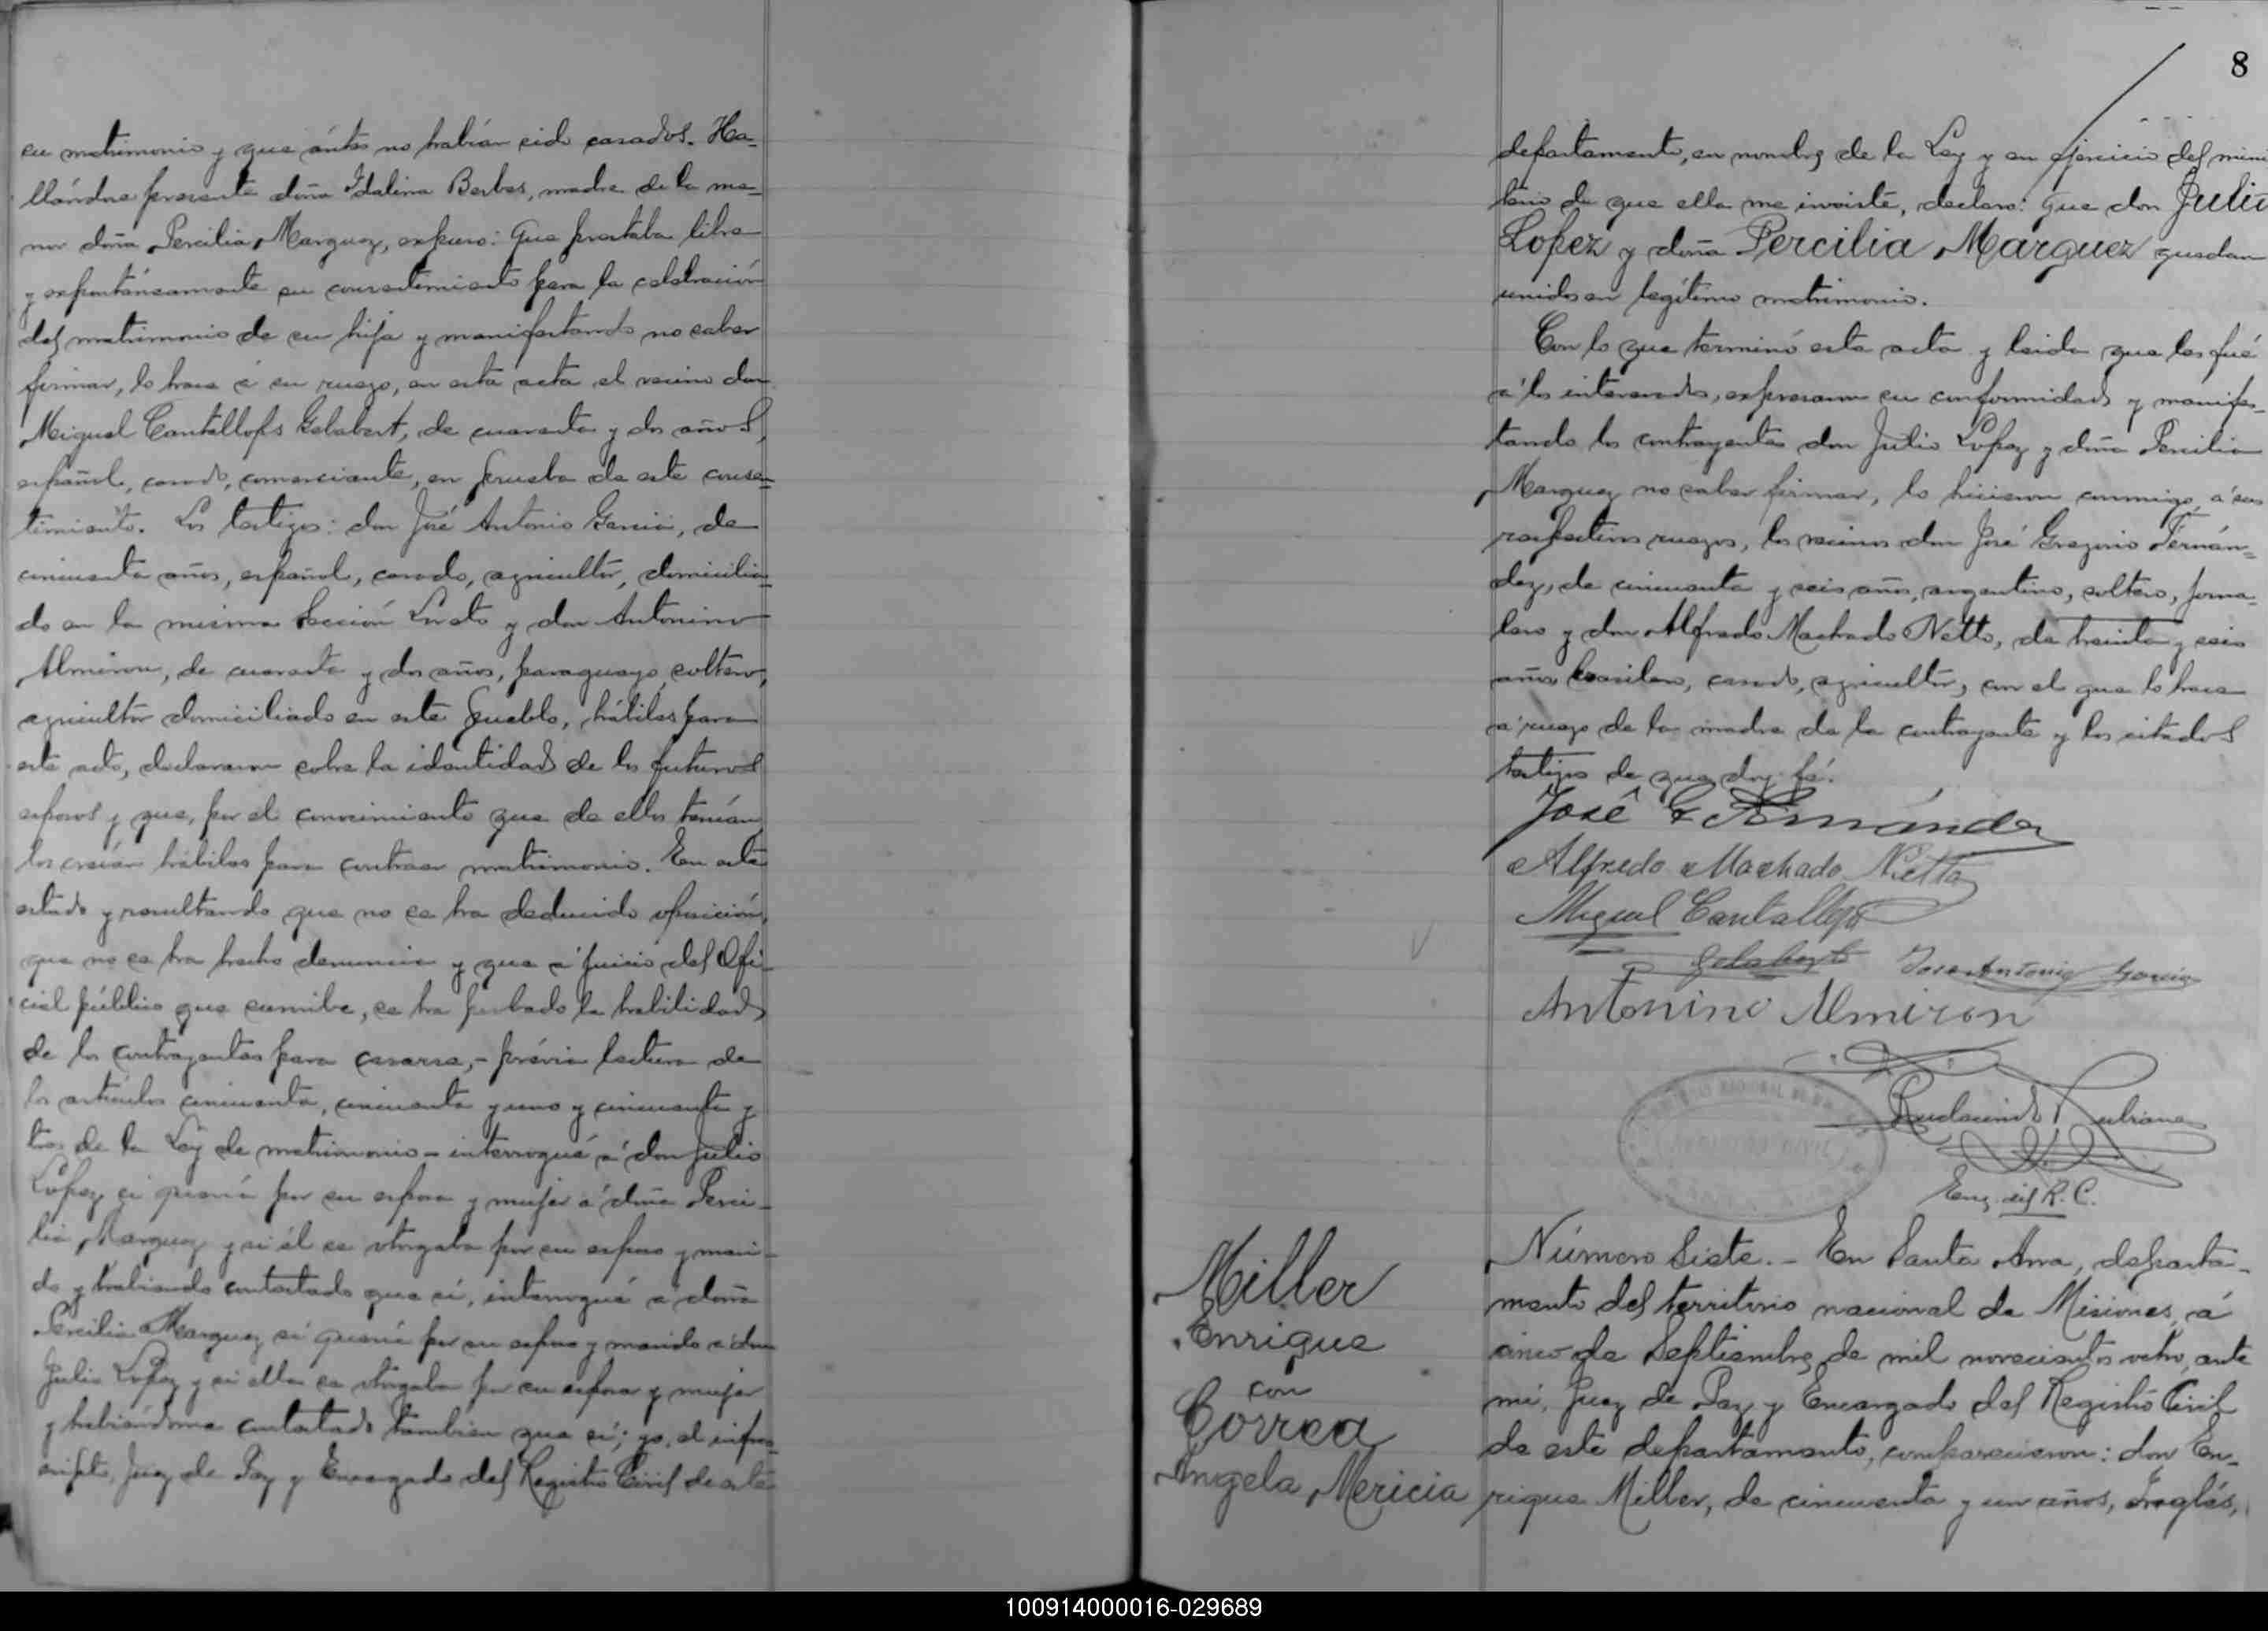 su matrimonio y que ántes no habían sido casados. Ha-
llándose presente doña Idalina Berbes, madre de la me-
nor doña Percilia Marquez, expuso: Que prestaba libre
y expontáneamente su consentimiento para la celebración
del matrimonio de su hija y manifestando no saber
firmar, lo hace á su ruego, en esta acta el vecino don
Miguel Cantallops Gelabert, de cuarenta y dos años,
español, casado, comerciante, en prueba de este consen-
timiento. Los testigos: don José Antonio Garcia, de
cincuenta años, español, casado, agricultor, domicilia-
do en la misma Sección Loreto y don Antonino
Almiron, de cuarenta y dos años, paraguayo, soltero,
agricultor domiciliado en este pueblo, hábiles para
este acto, declararon sobre la identidad de los futuros
esposos y que, por el conocimiento que de ellos tenían,
los creían hábiles para contraer matrimonio. En este
estado y resultando que no se ha deducido oposición,
que no se ha hecho denuncia y que á juicio del Ofi-
cial público que suscribe, se ha probado la habilidad
de los contrayentes para casarse,- prévia lectura de
los artículos cincuenta, cincuenta y uno y cincuenta y
tres de la Ley de matrimonio - interrogué á don Julio
Lopez si quería por su esposa y mujer á doña Perci-
lia Marquez y si él se otorgaba por su esposo y mari-
do y habiendo contestado que sí, interrogué á doña
Percilia Marquez si quería por su esposo y marido á don
Julio Lopez y si ella se otorgaba por su esposa y mujer
y habiéndome contestado tambien que sí; yo, el infras-
cripto, Juez de Paz y Encargado del Registro Civil de este
8
departamento, en nombre de la Ley y en ejercicio del minis
terio de que ella me inviste, declaro: que don Julio
Lopez y doña Percilia Marquez quedan
unidos en legítimo matrimonio.
Con lo que terminó esta acta y leida que les fué
á los interesados, expresaron su conformidad y manifes-
tando los contrayentes don Julio Lopez y doña Percilia
Marquez no saber firmar, lo hicieron conmigo, á sus
respectivos ruegos, los vecinos don José Gregorio Fernán-
dez, de cincuenta y seis años, argentino, soltero, jorna-
lero y don Alfredo Machado Netto, de treinta y seis
años brasilero, casado, agricultor, con el que lo hace
á ruego de la madre de la contrayente y los citados
testigos de que doy fé.
José G Fernández
Alfredo Machado Netto
Miguel Cantallops
Gelabert Jose Antonio Garcia
Antonino Almiron
Rudecindo
Enc. del R. C.
Miller
Enrique
con
Correa
Angela Mericia
Número Siete. - En Santa Ana, departa-
mento del territorio nacional de Misiones, á
cinco de Septiembre de mil novecientos ocho, ante
mí, Juez de Paz y Encargado del Registro Civil
de este departamento, comparecieron: don En-
rique Miller, de cincuenta y un años, Inglés,
100914000016-029689